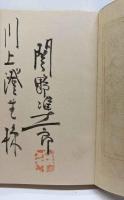 関野凖一郎
川上澄生様